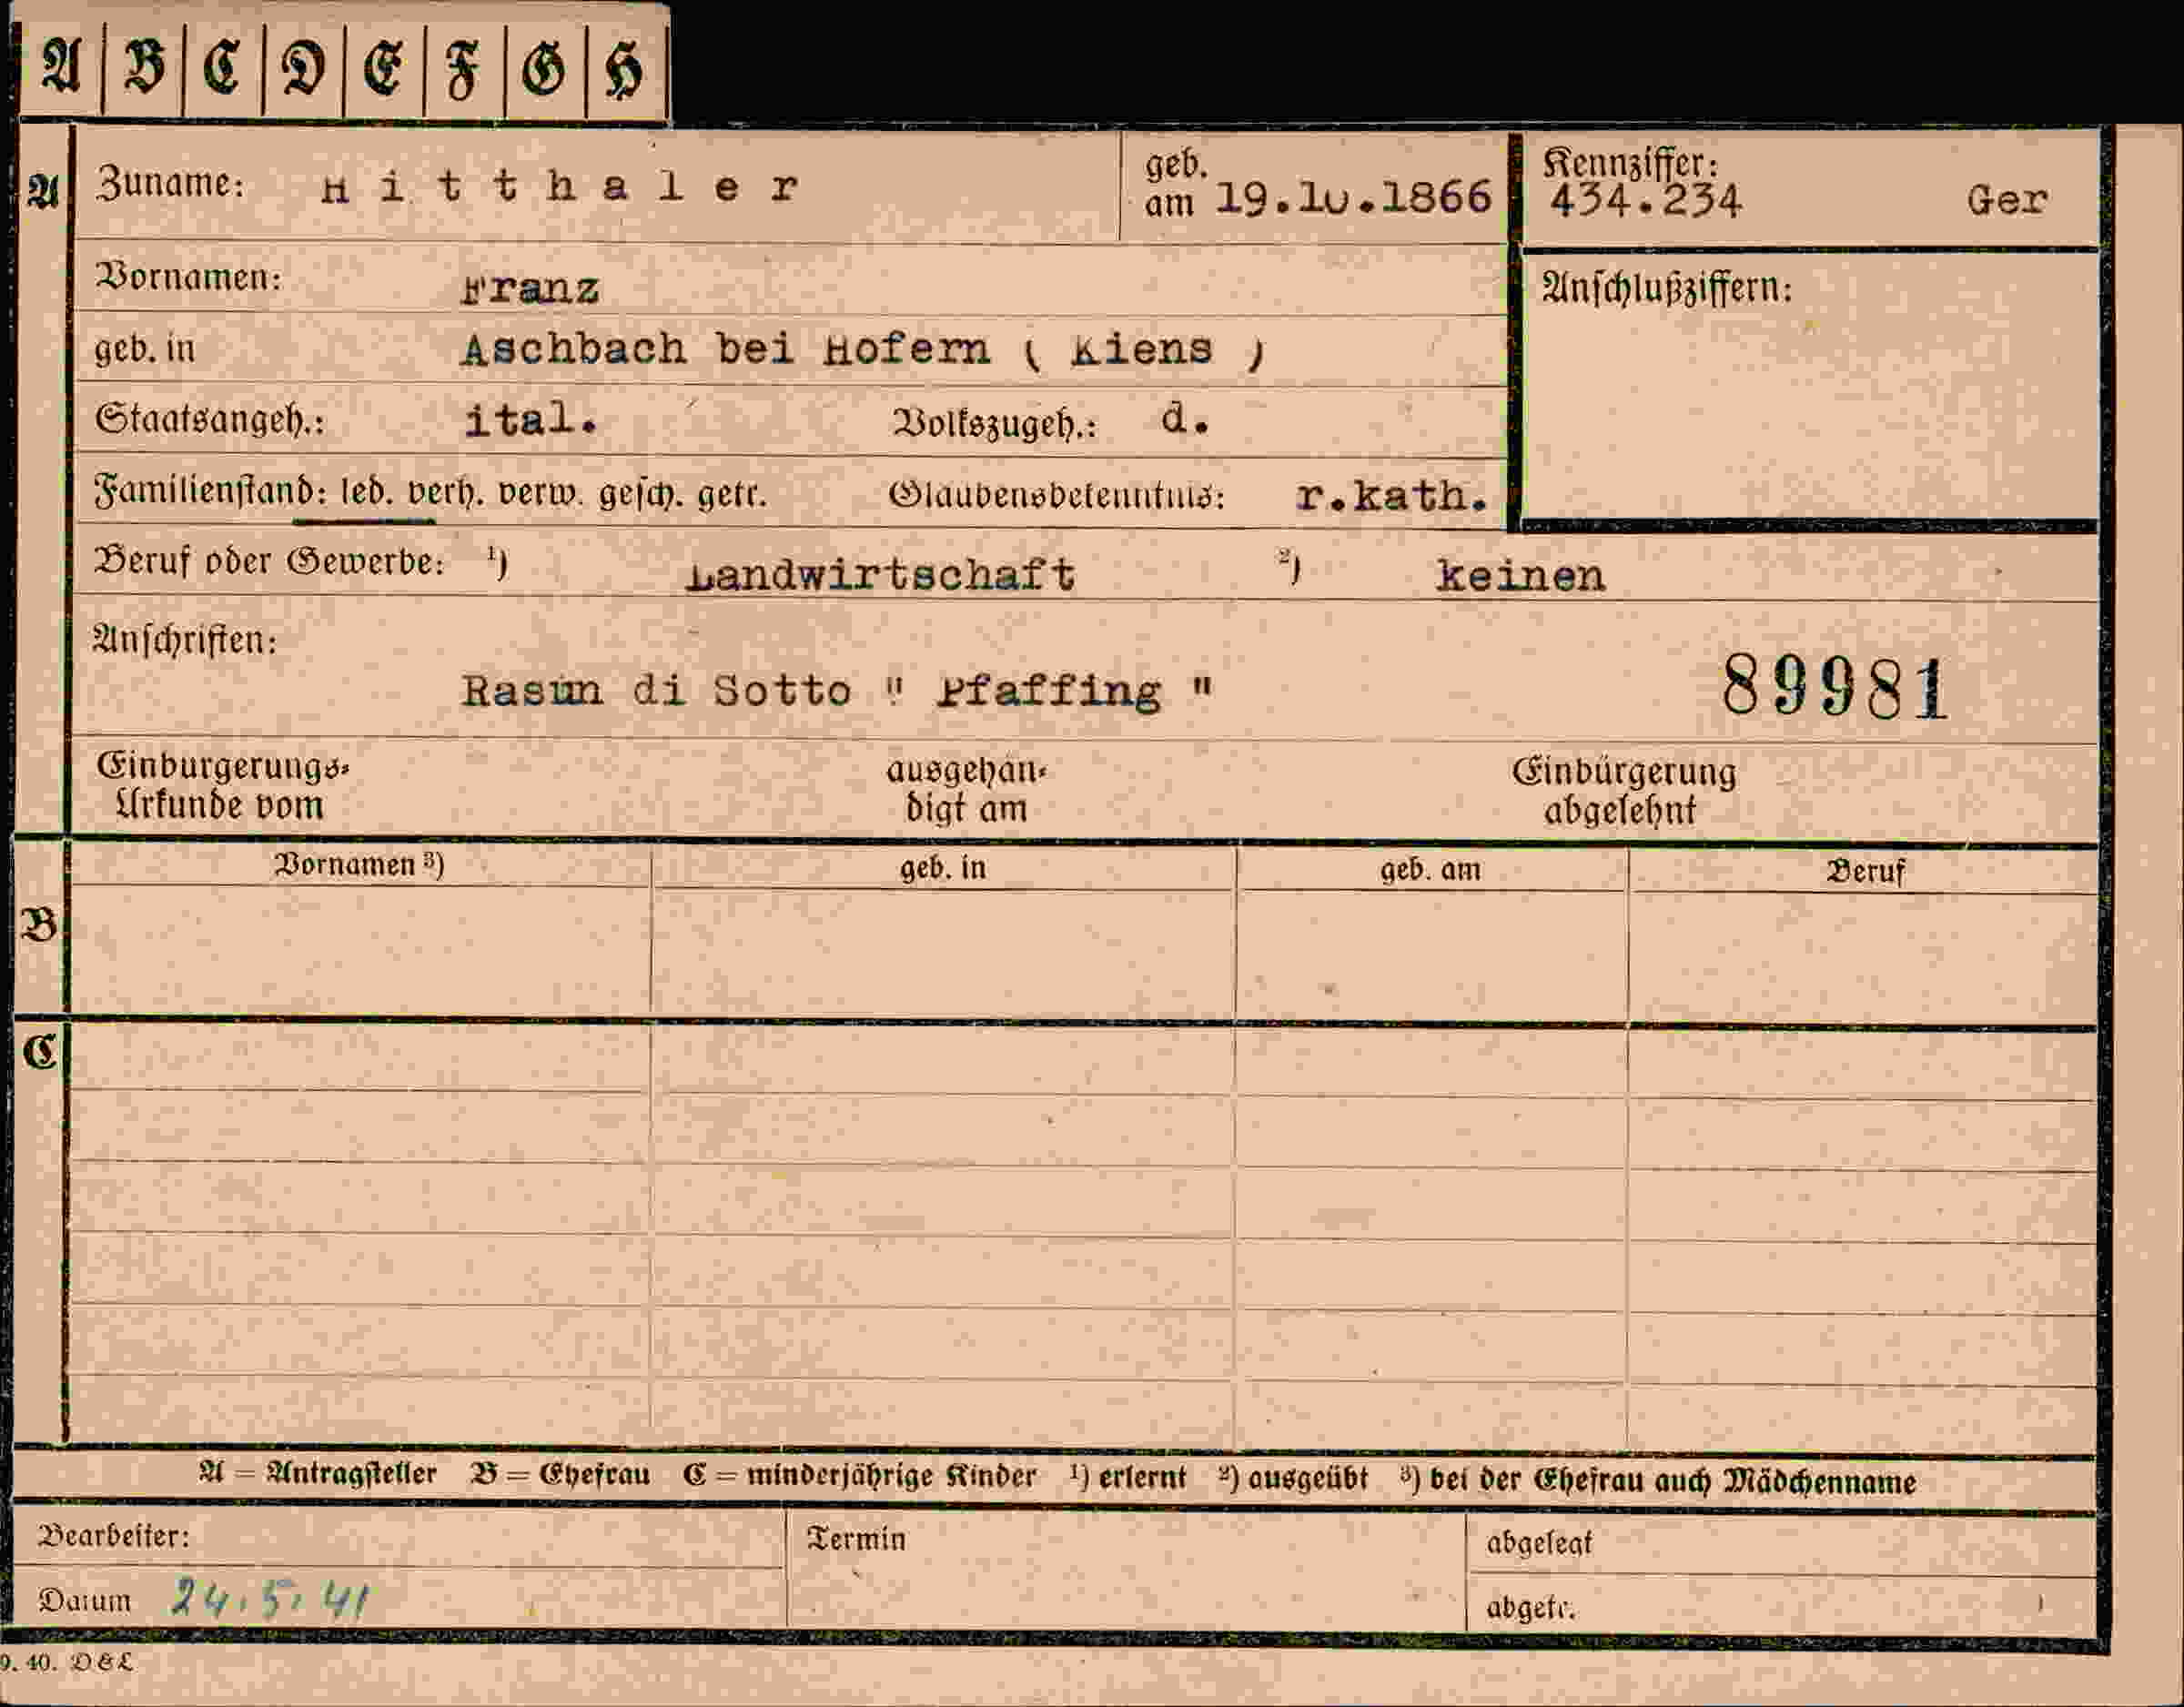 A B C D E F G H
A Zuname: Hitthaler geb. am 19.10.1866 Kennziffer: 434.234 Ger
Vornamen: Franz Anschlußziffern:
geb. in Aschbach bei Hofern ( Kiens )
Staatsangeh.: ital. Volkszugeh.: d.
Familienstand: led. verh. verw. gesch. getr. Glaubensbekenntnis: r.kath.
Beruf oder Gewerbe: ¹) Landwirtschaft ²) keinen
Anschriften:
Rasun di Sotto " Pfaffing " 89981
Einbürgerungs- ausgehän- Einbürgerung
Urkunde vom digt am abgelehnt
Vornamen ³) geb. in geb. am Beruf
B
C
A = Antragsteller B = Ehefrau C = minderjährige Kinder ¹) erlernt ²) ausgeübt ³) bei der Ehefrau auch Mädchenname
Bearbeiter: Termin abgelegt
Datum 24.5.41 abgetr.
9. 40. D & L